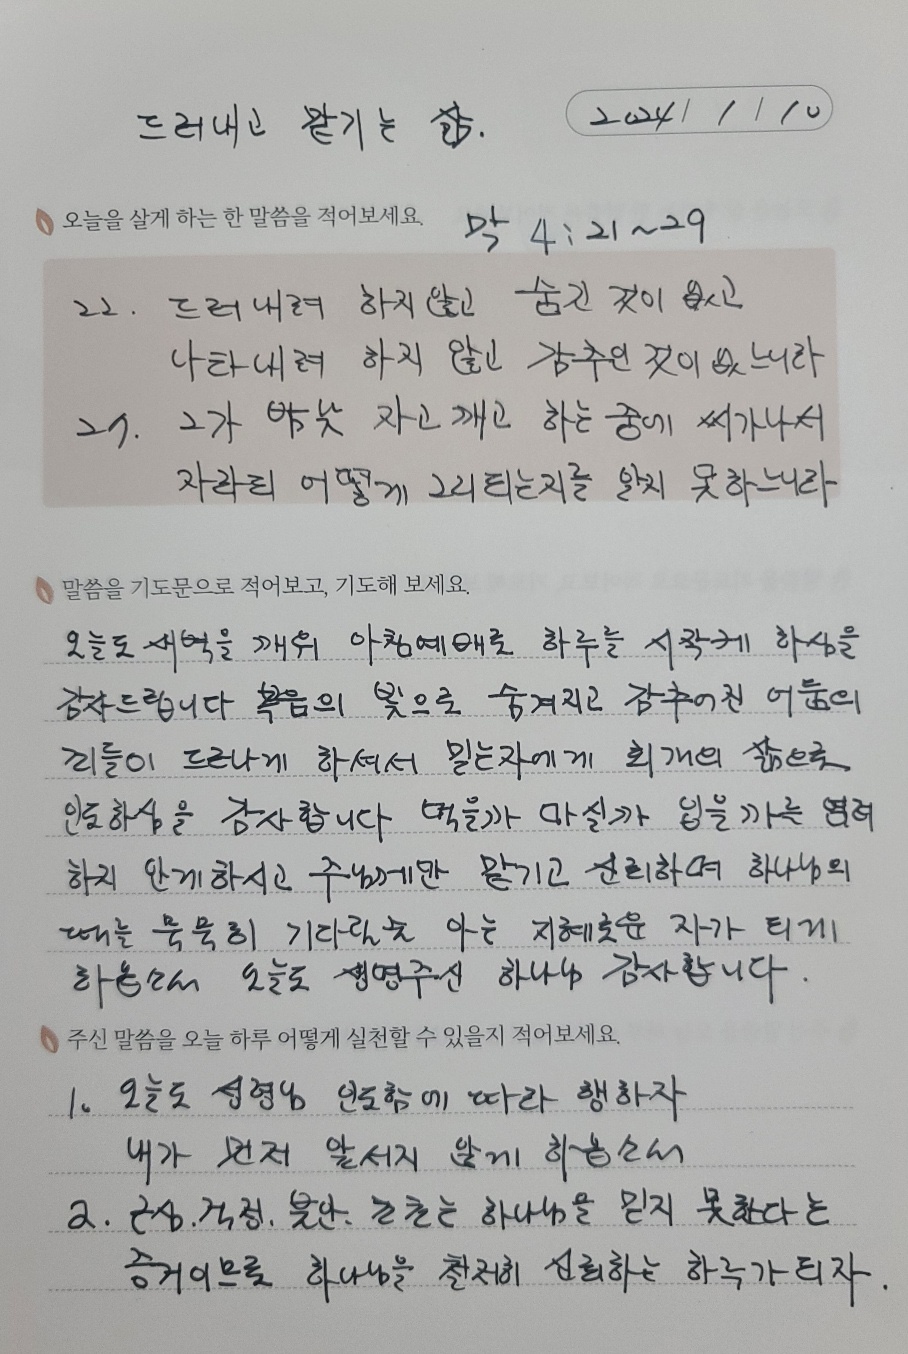 드러내고 맡기는 삶.
2024/1/10
오늘을 살게 하는 한 말씀을 적어보세요.
막 4:21~29
22. 드러내려 하지 않고 숨긴 것이 없고
나타내려 하지 않고 감추인 것이 없느니라
27. 그가 밤낮 자고 깨고 하는 중에 씨가나서
자라되 어떻게 그리되는지를 알지 못하느니라
말씀을 기도문으로 적어보고, 기도해 보세요.
오늘도 새벽을 깨워 아침예배로 하루를 시작케 하심을
감사드립니다 복음의 빛으로 숨겨지고 감추어진 어둠의
죄들이 드러나게 하셔서 믿는자에게 회개의 삶으로
인도하심을 감사합니다 먹을까 마실까 입을까를 염려
하지 않게하시고 주님께만 맡기고 신뢰하며 하나님의
때를 묵묵히 기다릴줄 아는 지혜로운 자가 되게
하옵소서 오늘도 생명주신 하나님 감사합니다.
주신 말씀을 오늘 하루 어떻게 실천할 수 있을지 적어보세요.
1. 오늘도 성령님 인도함에 따라 행하자
내가 먼저 앞서지 않게 하옵소서
2. 근심.걱정. 불안. 초조는 하나님을 믿지 못한다는
증거이므로 하나님을 철저히 신뢰하는 하루가 되자.